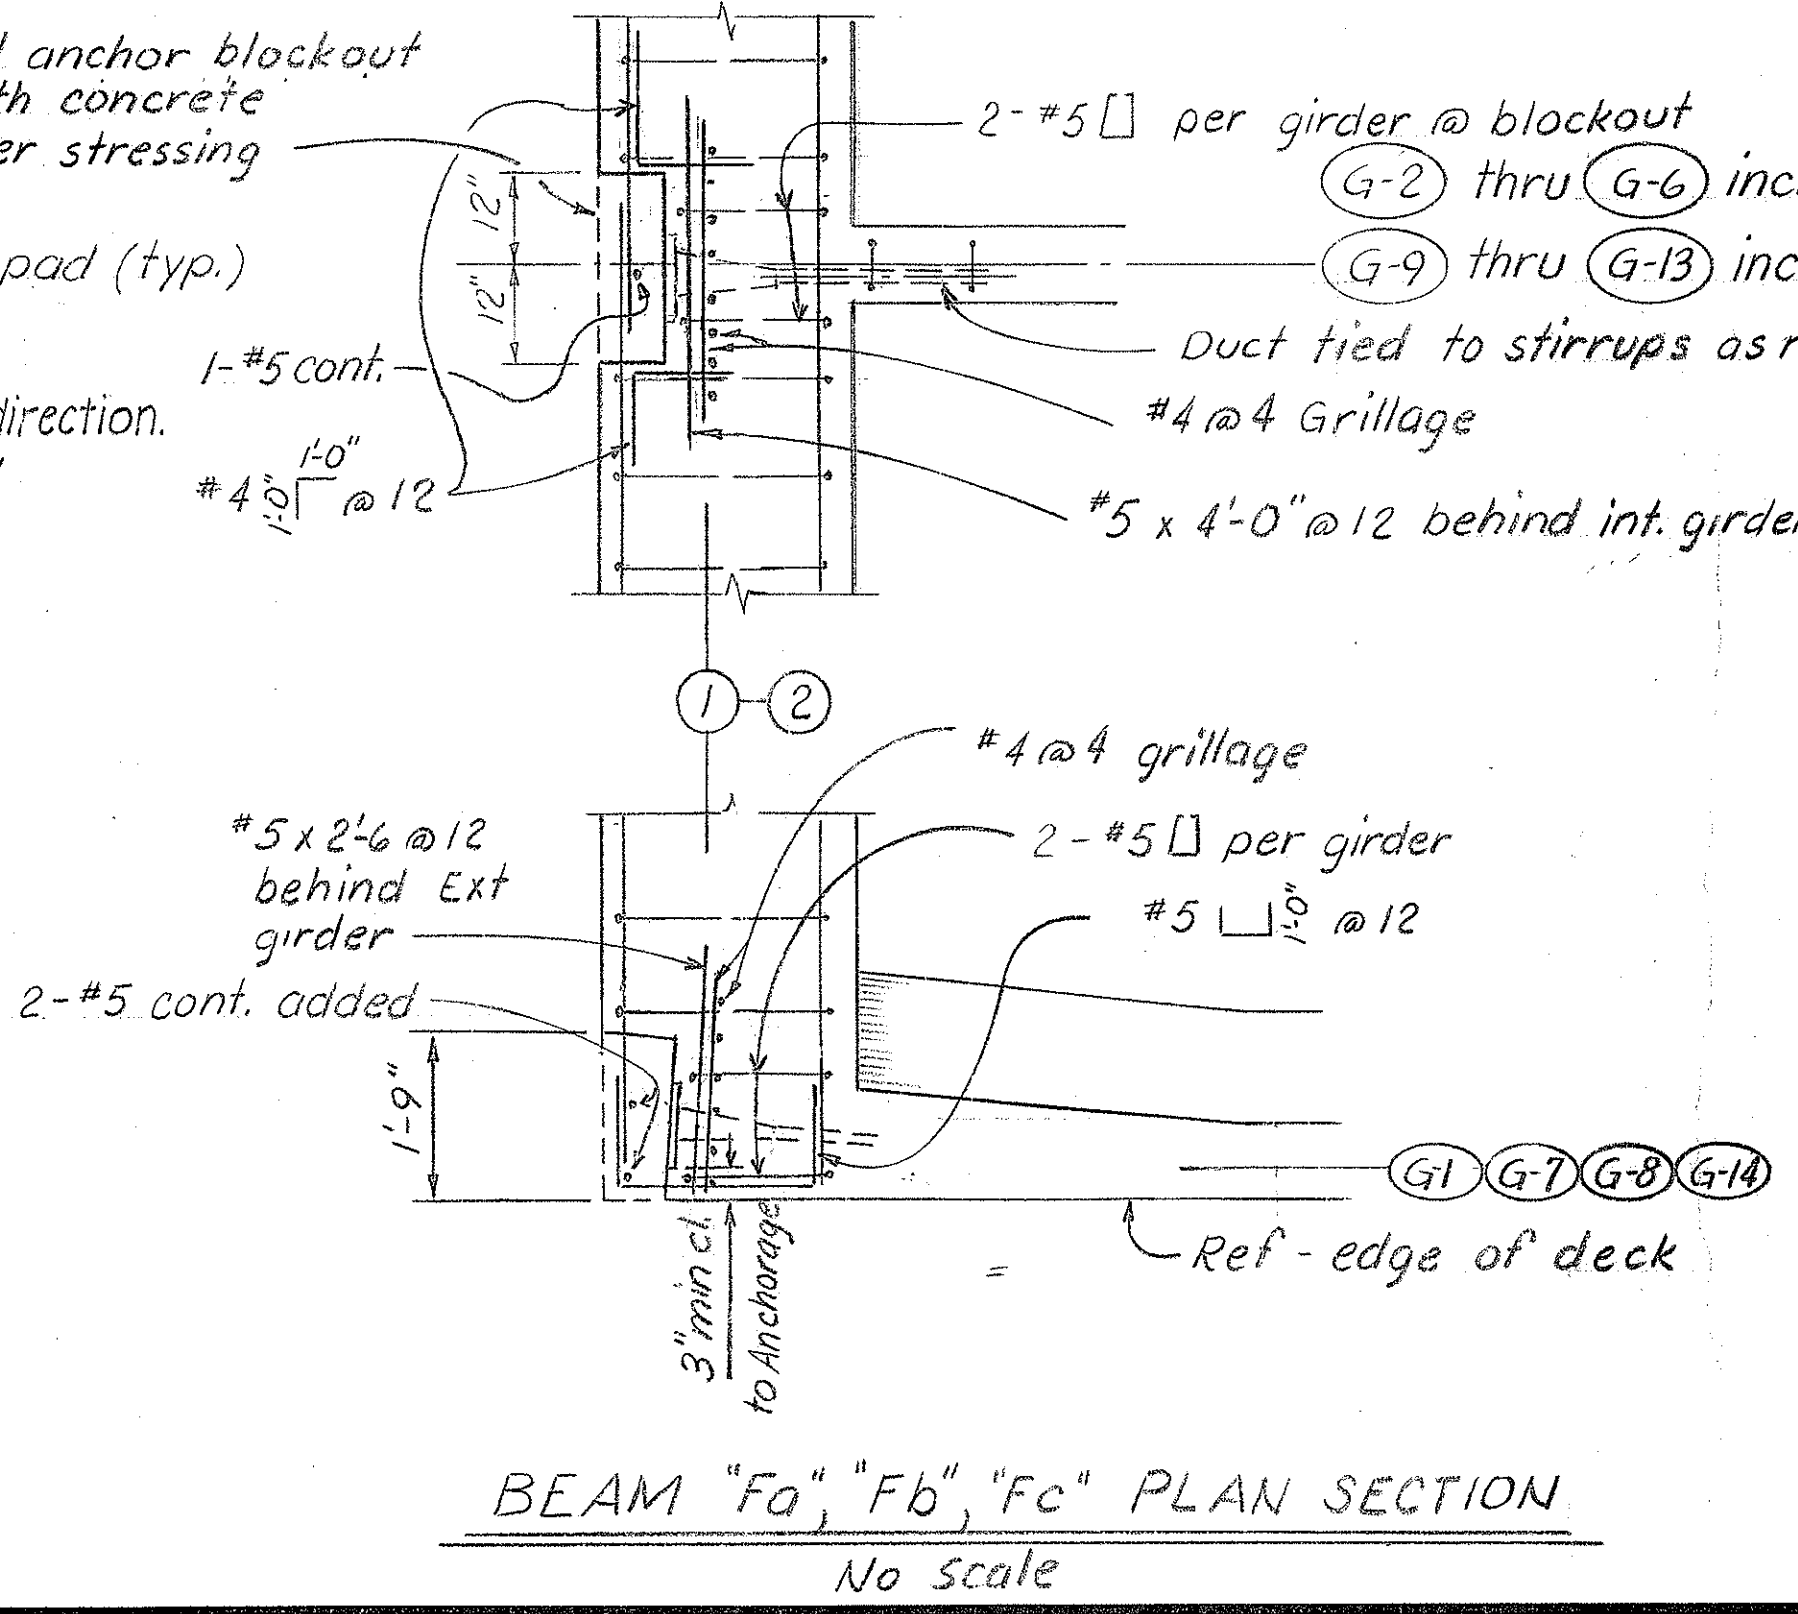 anchor blockout
concrete
stressing
pad (typ.)
1-#5 cont.
direction.
#4 1'-0" 1'-0" @ 12
12"
12"
2-#5 per girder @ blockout
G-2 thru G-6
G-9 thru G-13
Duct tied to stirrups as
#4 @ 4 Grillage
#5 x 4'-0" @ 12 behind int. girder
1 - 2
#4 @ 4 grillage
#5 x 2'-6 @ 12
behind Ext
girder
2-#5 per girder
#5 1'-0" @ 12
2-#5 cont. added
1'-9"
G-1 G-7 G-8 G-14
Ref - edge of deck
3" min cl.
to Anchorage
BEAM "Fa", "Fb", "Fc" PLAN SECTION
No scale